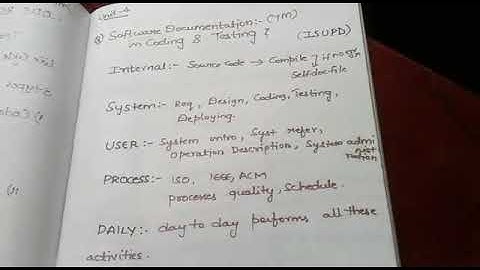 Unit-4
Software Documentation:- (7M)
in Coding & Testing? (ISUPD)
Internal:- Source Code → Compile
Selfdoc-file
System:- Req, Design, Coding, Testing,
Deploying.
USER:- System intro, Syst refer,
Operation Description, System admi
nist
ration
PROCESS:- ISO, IEEE, ACM
processes quality, Schedule.
DAILY:- day to day performs all these
activities.